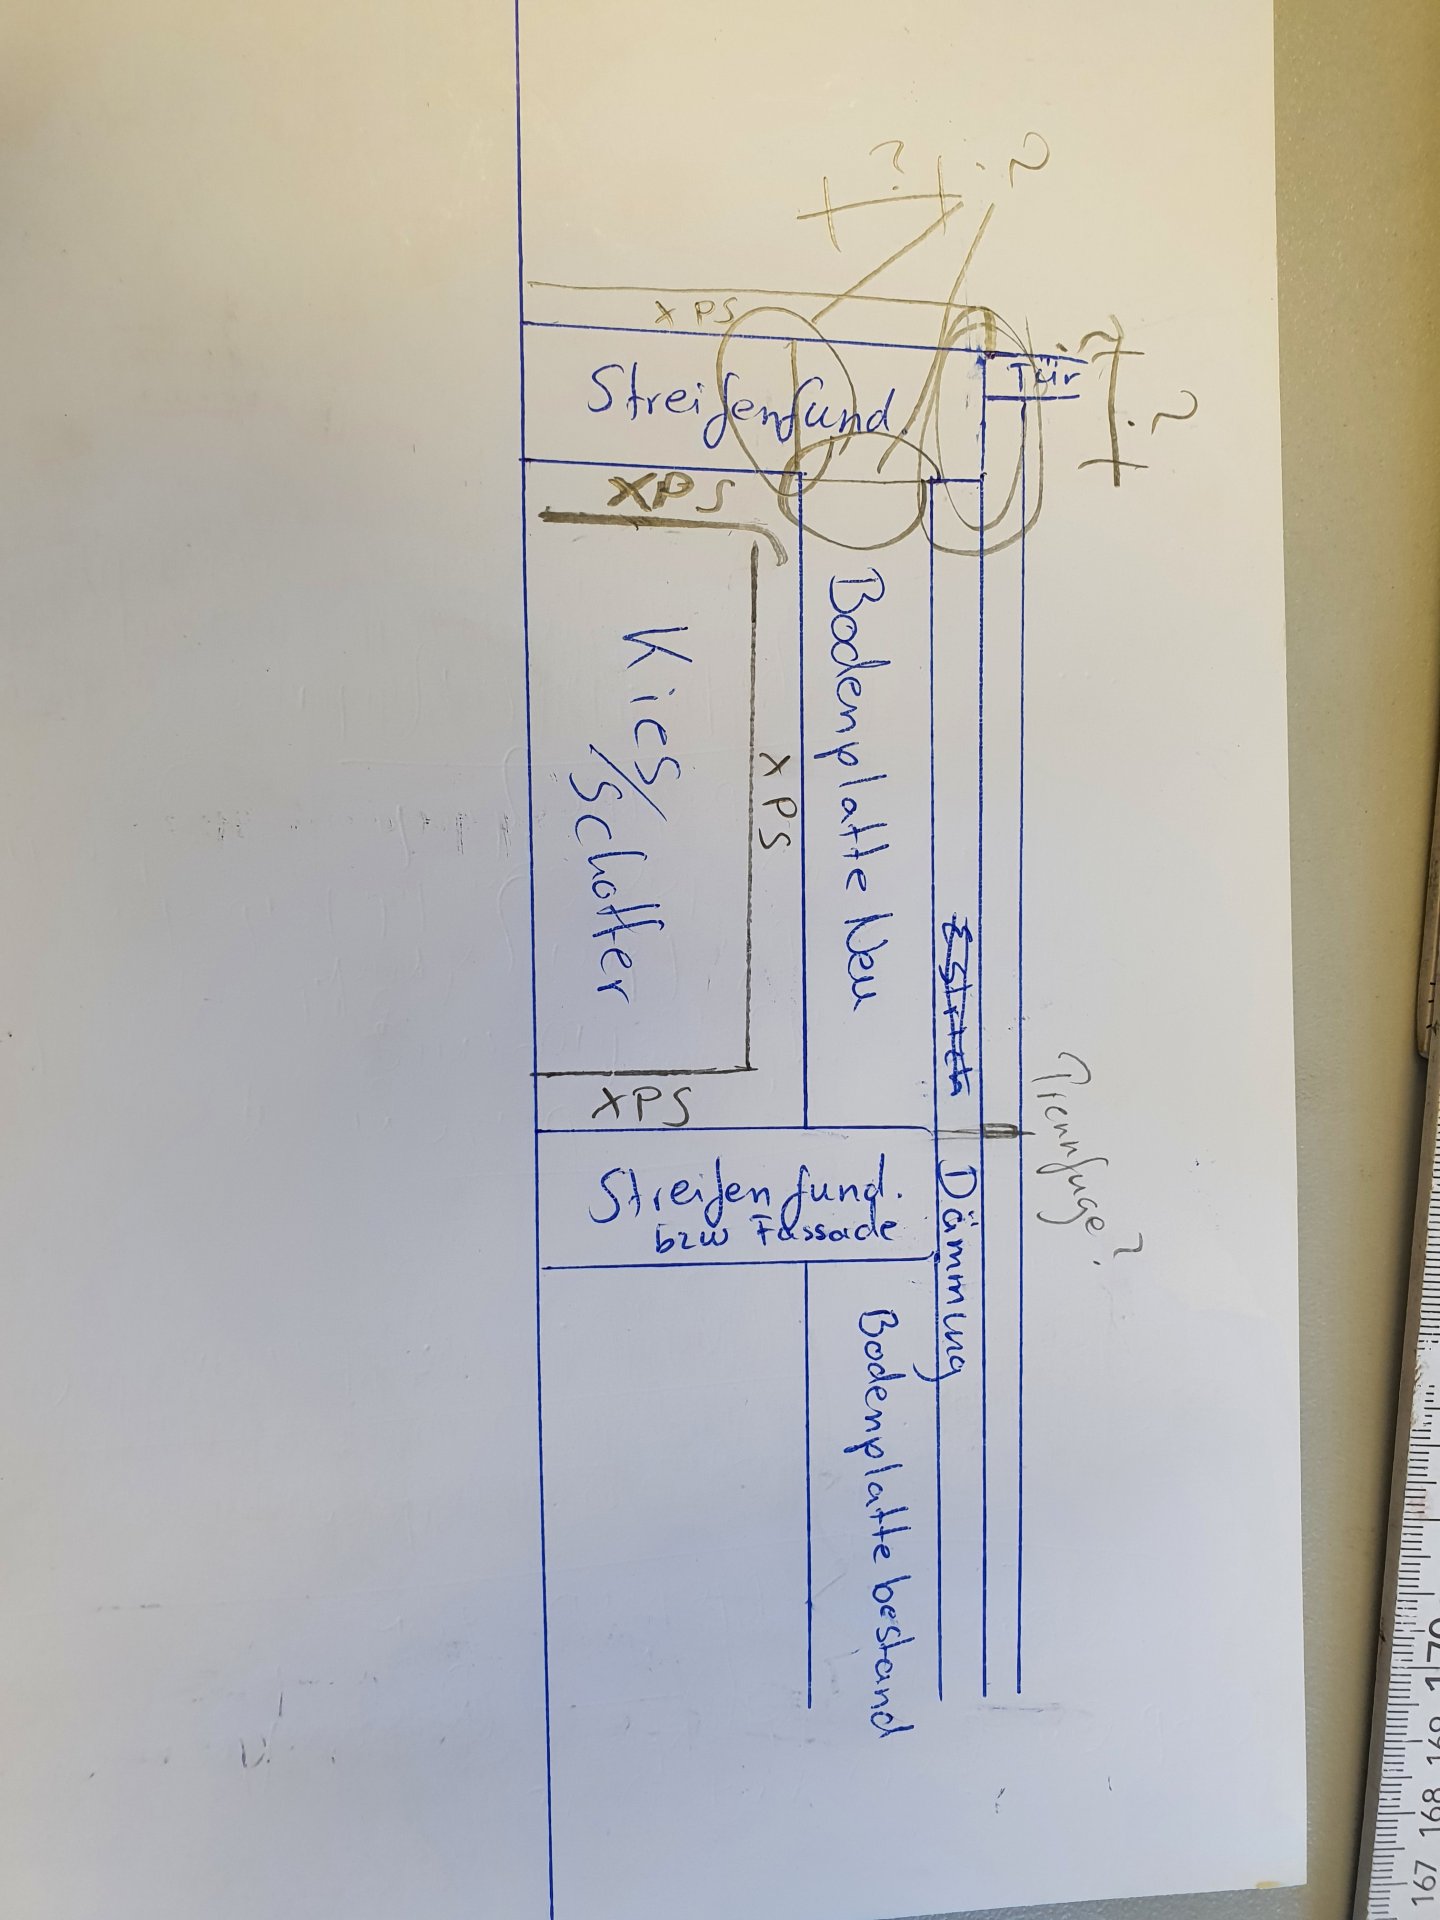 ?
?
XPS
?
Tür
?
Streifenfund.
XPS
Bodenplatte Neu
Kies/
Schotter
XPS
Estrich
Trennfuge?
XPS
Streifenfund.
bzw Fassade
Dämmung
Bodenplatte bestand
167 168 169 170